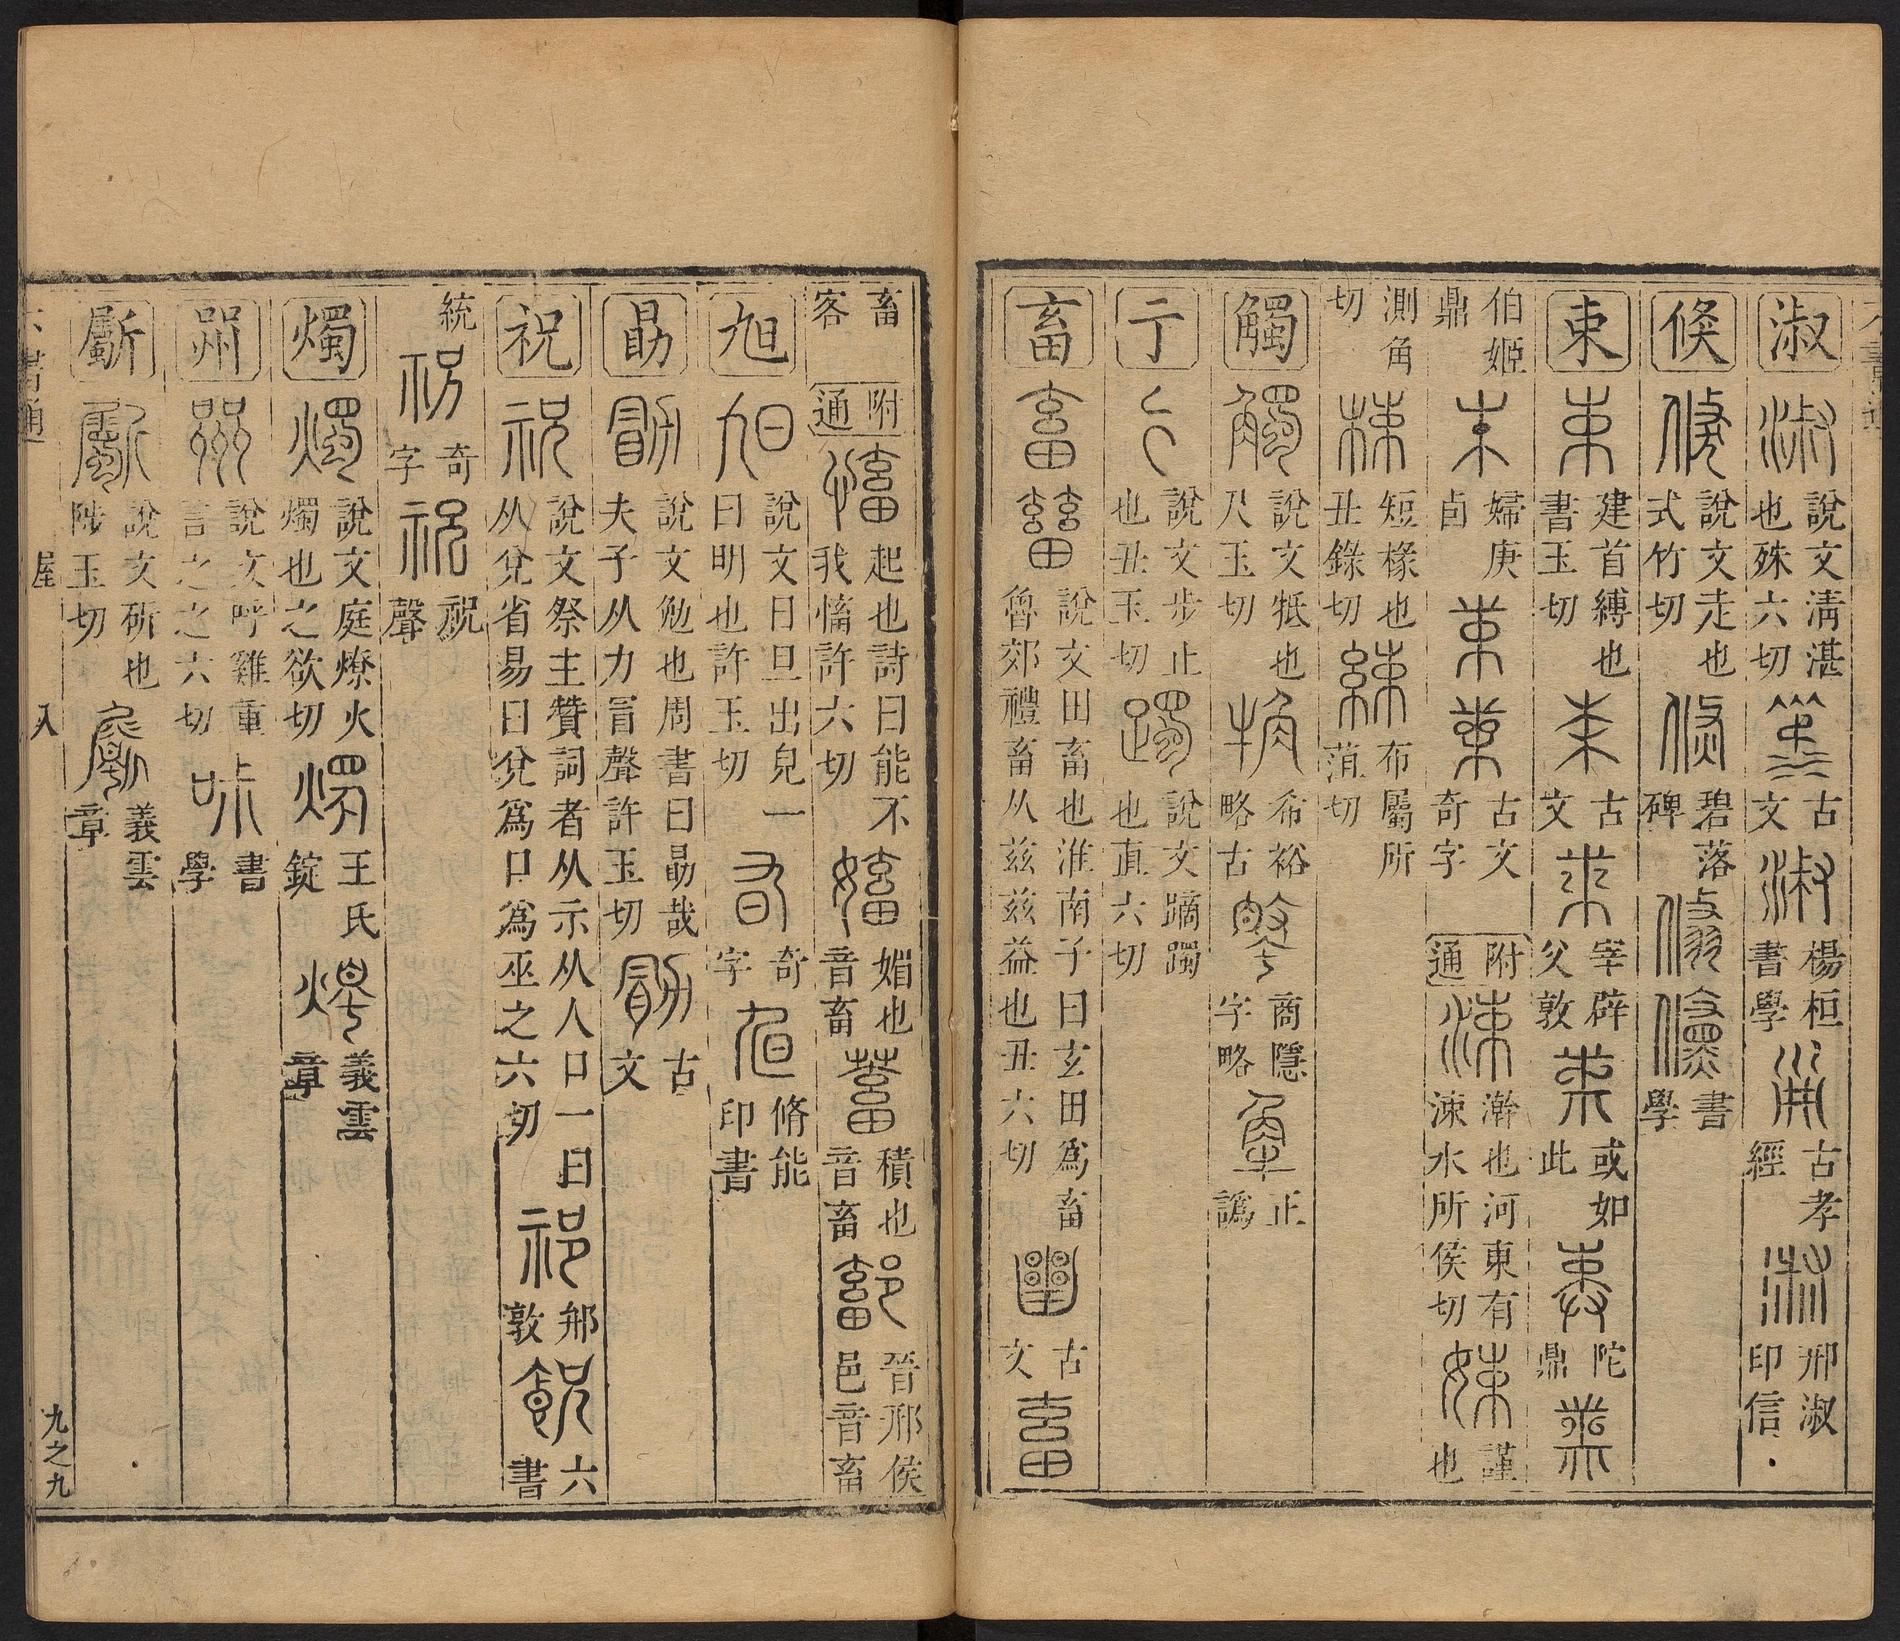 淑 說文淸湛也殊六切 古文 楊桓書學 古孝經 邢淑印信
倏 說文走也式竹切 碧落碑 書學
束 建首縛也書玉切 古文 宰辟父敦 或如此 陀鼎
伯姬鼎 婦庚卣 古文奇字 附通 涑 澣也河東有涑水所侯切 娕 謹也
測角切 梀 短椽也丑錄切 綀 布屬所葅切
觸 說文牴也尺玉切 希裕略古 商隱字略 正譌
亍 說文步止也丑玉切 躅 說文蹢躅也直六切
畜 說文田畜也淮南子曰玄田爲畜魯郊禮畜从兹兹益也丑六切 古文
畜容 附通 慉 起也詩曰能不我慉許六切 媏 媚也音畜 蓄 積也音畜 鄐 晉邢侯邑音畜
旭 說文日旦出皃一曰明也許玉切 奇字 脩能印書
勖 說文勉也周書曰勖哉夫子从力冒聲許玉切 古文
祝 說文祭主贊詞者从示从人口一曰从兌省易曰兌爲口爲巫之六切 邢敦 六書
統 奇字 祝聲
燭 說文庭燎火燭也之欲切 王氏錠 義雲章
喌 說文呼雞重言之之六切 書學
斸 說文斫也陟玉切 義雲章
六書通 屋 入 九之九